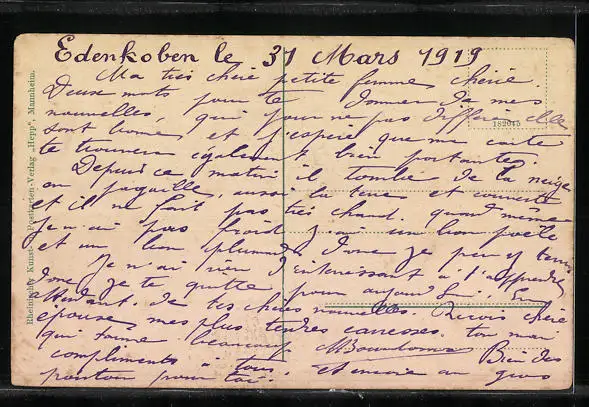 Edenkoben le 31 Mars 1919
Ma très chère petite femme chérie.
Deux mots pour te donner de mes
nouvelles, qui pour ne pas différer elle
sont bonnes et j'espère que ma carte
te trouvera également bien portante.
Depuis ce matin il tombe de la neige
en pagaille, aussi la terre est couverte
et il ne fait pas très chaud. quand même
Je n'ai pas froid j'ai un bon poêle
et un bon plumard donc je peu y tenir
Je n'ai rien d'intéressant à t'apprendre
donc je te quitte pour aujourd'hui, En
attendant de tes chères nouvelles. Reçois chère
épouse mes plus tendres caresses. ton mari
qui t'aime beaucoup
Bien des
compliments à tous. et encore un gros
pour toi.
182045
Rheinischer Kunst- u. Postkarten-Verlag „Hepp", Mannheim.